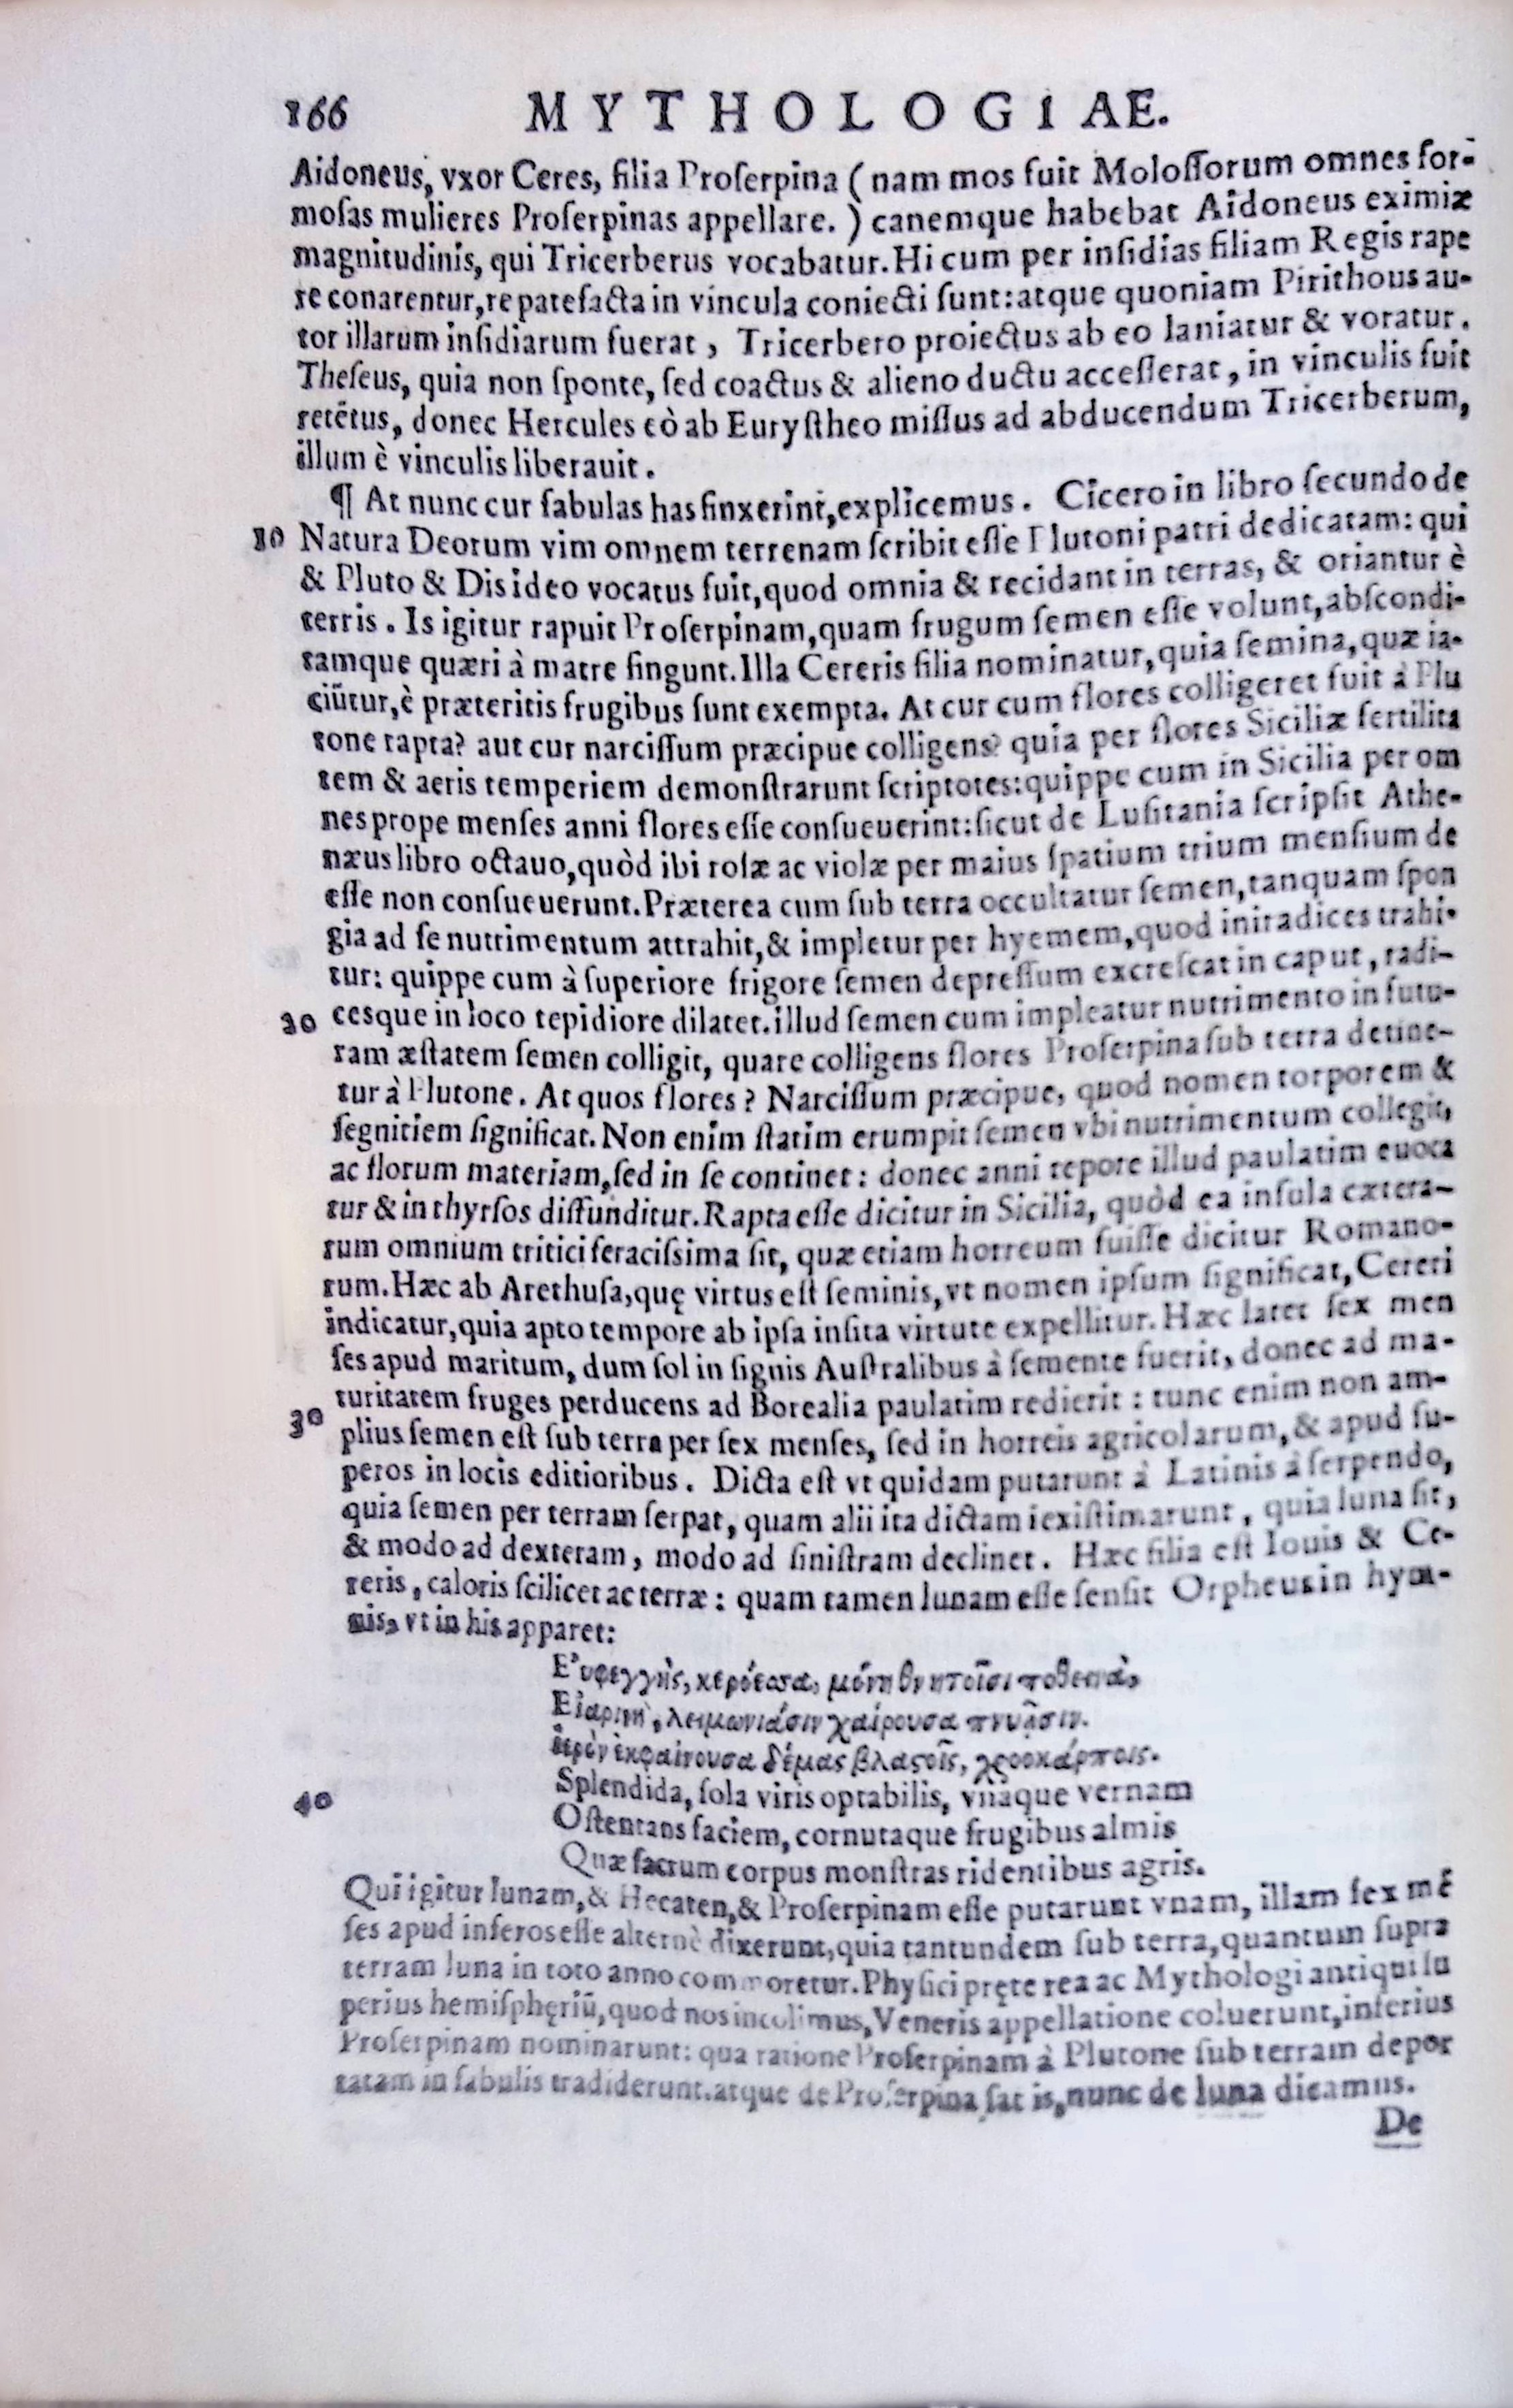 166 MYTHOLOGIAE.
Aidoneus, vxor Ceres, filia Proſerpina ( nam mos fuit Moloſſorum omnes for-
moſas mulieres Proſerpinas appellare. ) canemque habebat Aidoneus eximiæ
magnitudinis, qui Tricerberus vocabatur. Hi cum per inſidias filiam Regis rape
re conarentur, re patefacta in vincula coniecti ſunt: atque quoniam Pirithous au-
tor illarum inſidiarum fuerat, Tricerbero proiectus ab eo laniatur & voratur.
Theſeus, quia non ſponte, ſed coactus & alieno ductu acceſſerat, in vinculis fuit
retētus, donec Hercules eò ab Euryſtheo miſſus ad abducendum Tricerberum,
illum è vinculis liberauit.
¶ At nunc cur fabulas has finxerint, explicemus. Cicero in libro ſecundo de
10 Natura Deorum vim omnem terrenam ſcribit eſſe Plutoni patri dedicatam: qui
& Pluto & Dis ideo vocatus fuit, quod omnia & recidant in terras, & oriantur è
terris. Is igitur rapuit Proſerpinam, quam frugum ſemen eſſe volunt, abſcondi-
tamque quæri à matre fingunt. Illa Cereris filia nominatur, quia ſemina, quæ ia-
ciūtur, è præteritis frugibus ſunt exempta. At cur cum flores colligeret fuit à Plu
tone rapta? aut cur narciſſum præcipue colligens? quia per flores Siciliæ fertilita
tem & aeris temperiem demonſtrarunt ſcriptores: quippe cum in Sicilia per om
nes prope menſes anni flores eſſe conſueuerint: ſicut de Luſitania ſcripſit Athe-
næus libro octauo, quòd ibi roſæ ac violæ per maius ſpatium trium menſium de
eſſe non conſueuerunt. Præterea cum ſub terra occultatur ſemen, tanquam ſpon
gia ad ſe nutrimentum attrahit, & impletur per hyemem, quod in iradices trahi-
tur: quippe cum à ſuperiore frigore ſemen depreſſum excreſcat in caput, radi-
20 cesque in loco tepidiore dilatet. illud ſemen cum impleatur nutrimento in futu-
ram æſtatem ſemen colligit, quare colligens flores Proſerpina ſub terra detine-
tur à Plutone. At quos flores? Narciſſum præcipue, quod nomen torporem &
ſegnitiem ſignificat. Non enim ſtatim erumpit ſemen vbi nutrimentum collegit,
ac florum materiam, ſed in ſe continet: donec anni tēpore illud paulatim euoca
tur & in thyrſos diffunditur. Rapta eſſe dicitur in Sicilia, quòd ea inſula cætera-
rum omnium tritici feraciſsima ſit, quæ etiam horreum fuiſſe dicitur Romano-
rum. Hæc ab Arethuſa, quę virtus eſt ſeminis, vt nomen ipſum ſignificat, Cereri
indicatur, quia apto tempore ab ipſa inſita virtute expellitur. Hæc latet ſex men
ſes apud maritum, dum ſol in ſignis Auſtralibus à ſemente fuerit, donec ad ma-
turitatem fruges perducens ad Borealia paulatim redierit: tunc enim non am-
30 plius ſemen eſt ſub terra per ſex menſes, ſed in horreis agricolarum, & apud ſu-
peros in locis editioribus. Dicta eſt vt quidam putarunt à Latinis à ſerpendo,
quia ſemen per terram ſerpat, quam alii ita dictam iexiſtimarunt, quia luna ſit,
& modo ad dexteram, modo ad ſiniſtram declinet. Hæc filia eſt Iouis & Ce-
reris, caloris ſcilicet ac terræ: quam tamen lunam eſſe ſenſit Orpheus in hym-
nis, vt in his apparet:
Εὐφεγγὴς, κερόεσσα, μόνη θνητοῖσι ποθεινὰ,
Εἰαρινὴ, λειμωνιάσιν χαίρουσα πνοῇσιν.
ἱερὸν ἐκφαίνουσα δέμας βλαϛοῖς, χλοοκάρποις.
Splendida, ſola viris optabilis, vnaque vernam
40 Oſtentans faciem, cornutaque frugibus almis
Quæ ſacrum corpus monſtras ridentibus agris.
Qui igitur lunam, & Hecaten, & Proſerpinam eſſe putarunt vnam, illam ſex mē
ſes apud inferos eſſe alternè dixerunt, quia tantundem ſub terra, quantum ſupra
terram luna in toto anno commoretur. Phyſici pręterea ac Mythologi antiqui ſu
perius hemiſphęriū, quod nos incolimus, Veneris appellatione coluerunt, inferius
Proſerpinam nominarunt: qua ratione Proſerpinam à Plutone ſub terram depor
tatam in fabulis tradiderunt. atque de Proſerpina ſat is, nunc de luna dicamus.
De